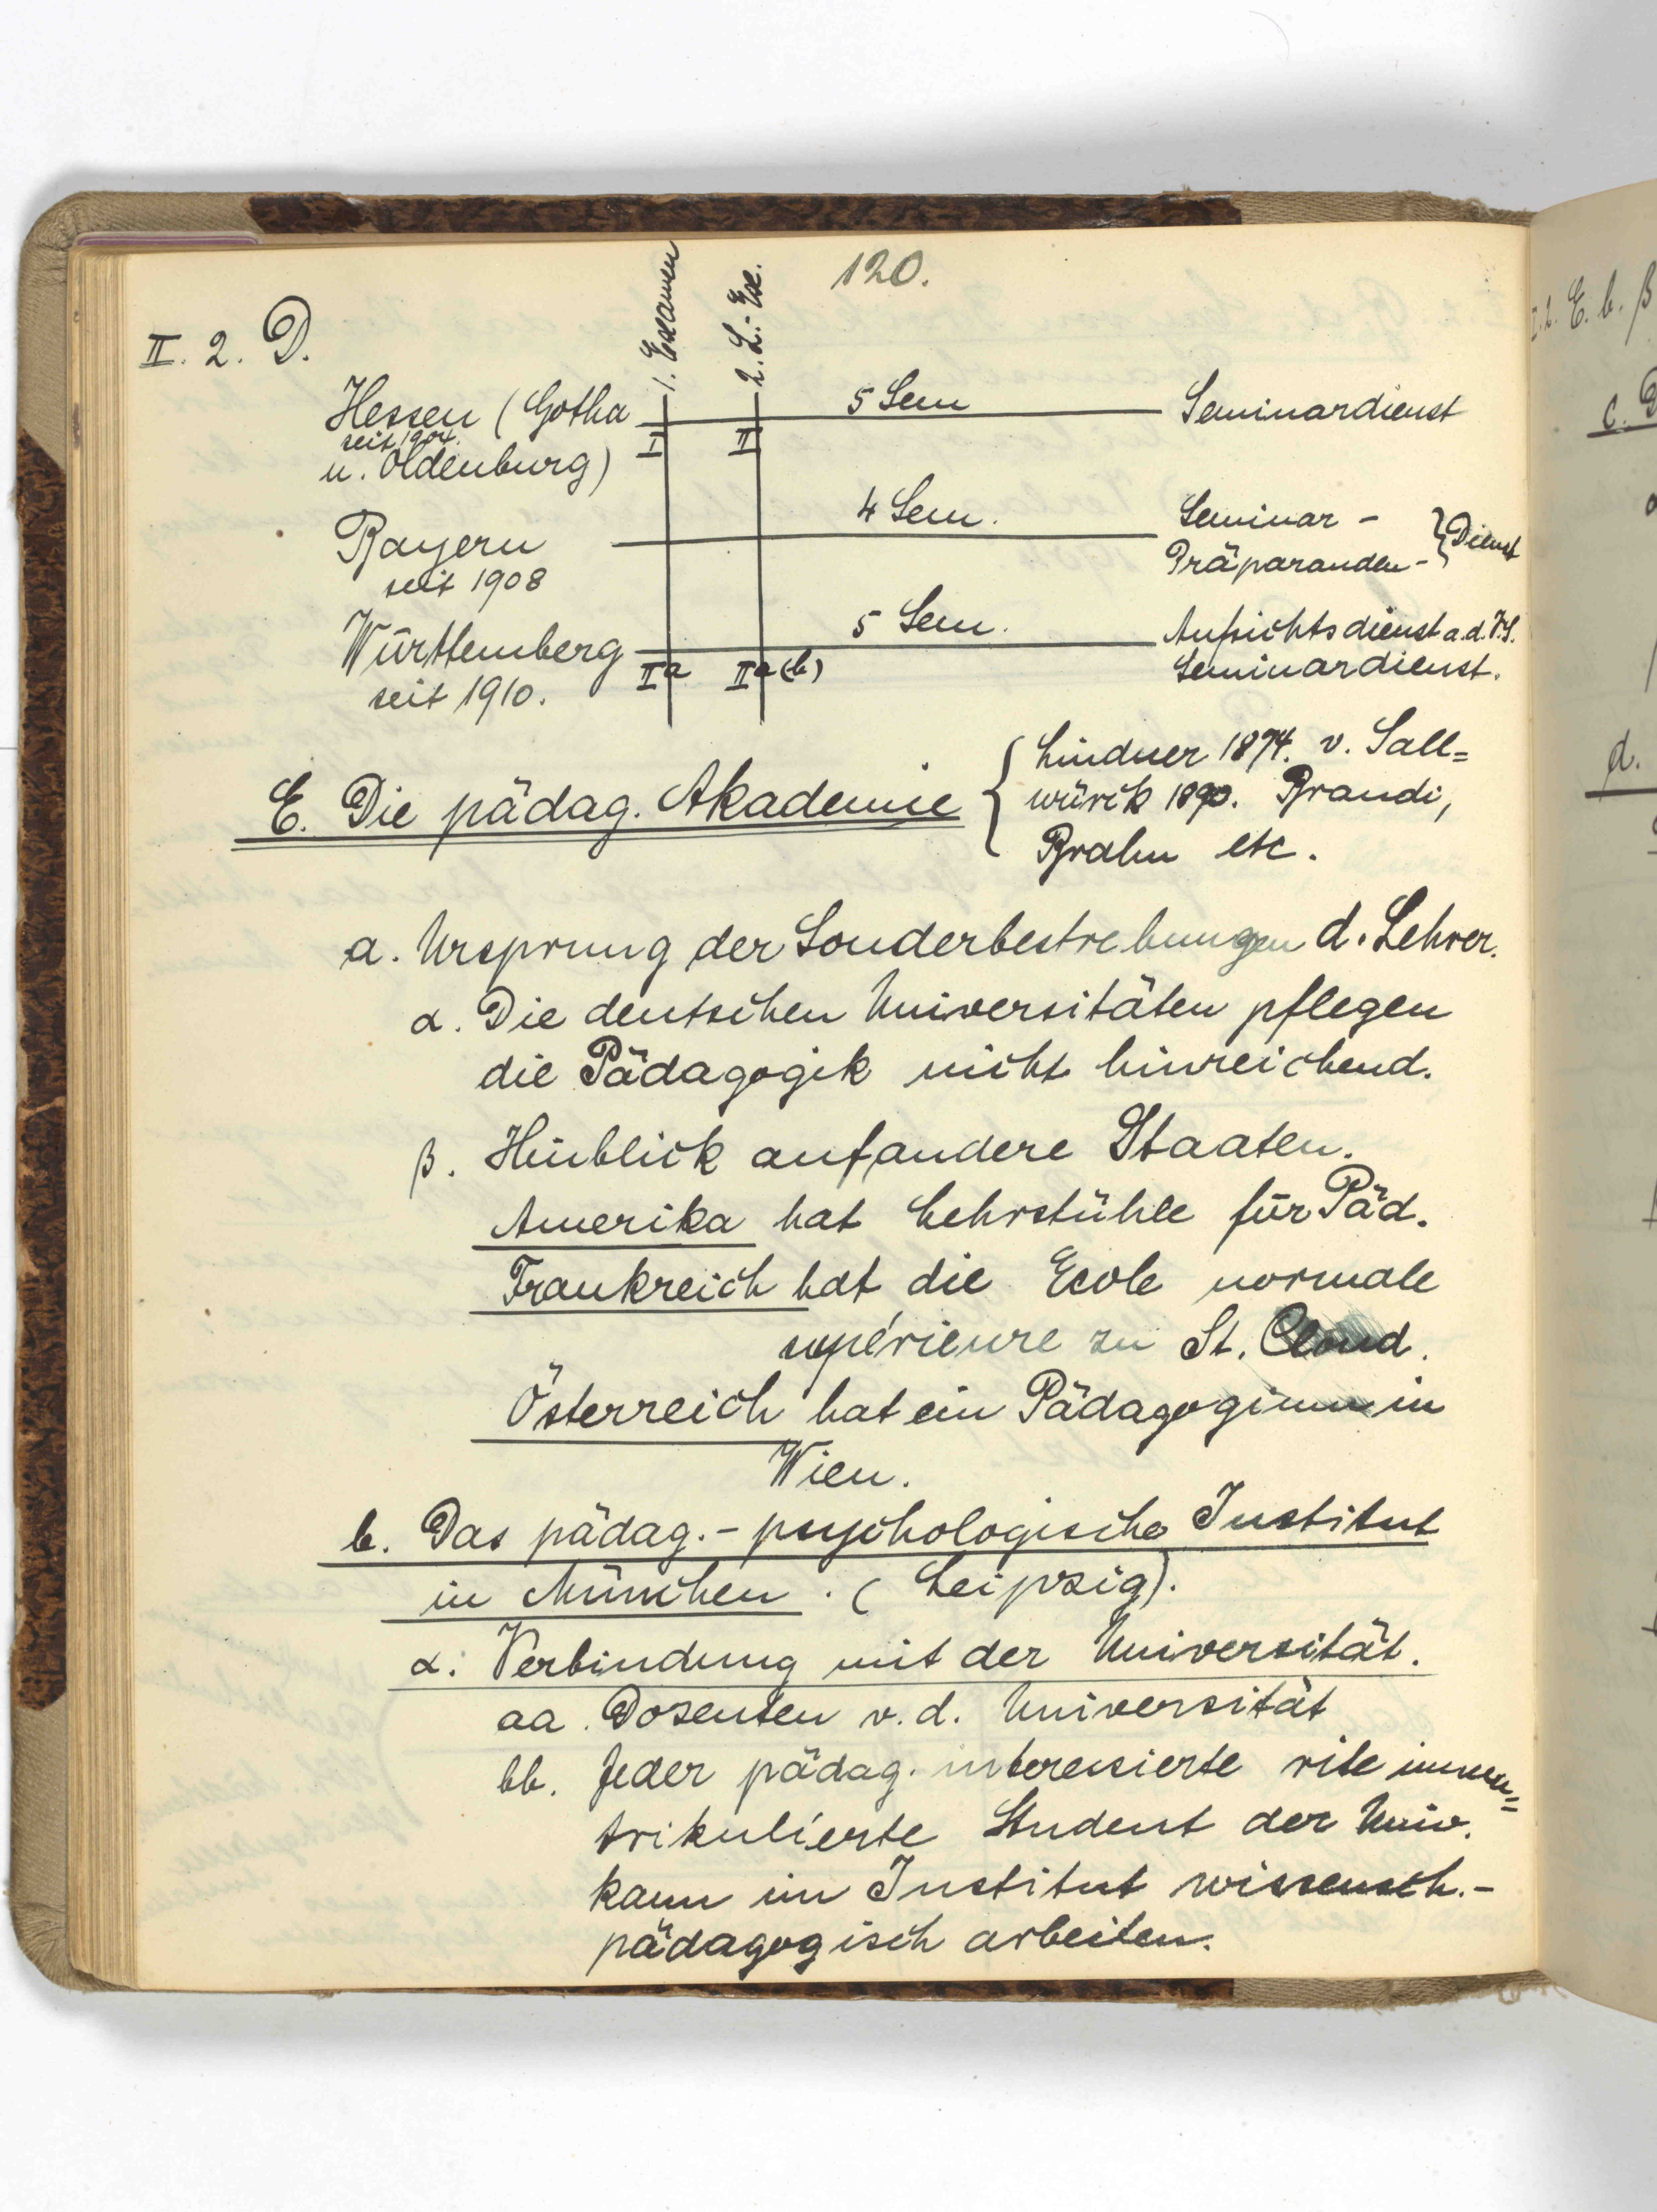 120.
II. 2. D.
1. Examen
2. L.-Ex.
Hessen (Gotha 5 Sem Seminardienst
seit 1904. I II
u. Oldenburg)
4 Sem. Seminar - } Dienst
Bayern Präparanden-
seit 1908
5 Sem. Aufsichtsdienst a.d. V.S.
Württemberg Seminardienst.
IIa IIa(b)
seit 1910.
Lindner 1874. v. Sall=
E. Die pädag. Akademie { würck 1890. Brandi,
Brahn etc.
a. Ursprung der Sonderbestrebungen d. Lehrer.
α. Die deutschen Universitäten pflegen
die Pädagogik nicht hinreichend.
β. Hinblick auf andere Staaten.
Amerika hat Lehrstühle für Päd.
Frankreich hat die Ecole normale
supérieure zu St. Cloud.
Österreich hat ein Pädagogium in
Wien.
b. Das pädag.-psychologische Institut
in München. (Leipzig).
α. Verbindung mit der Universität.
aa. Dozenten v. d. Universität
bb. Jeder pädag. interessierte rite imma=
trikulierte Student der Univ.
kann im Institut wissensch.-
pädagogisch arbeiten.
2. E. b. β
c.
d.